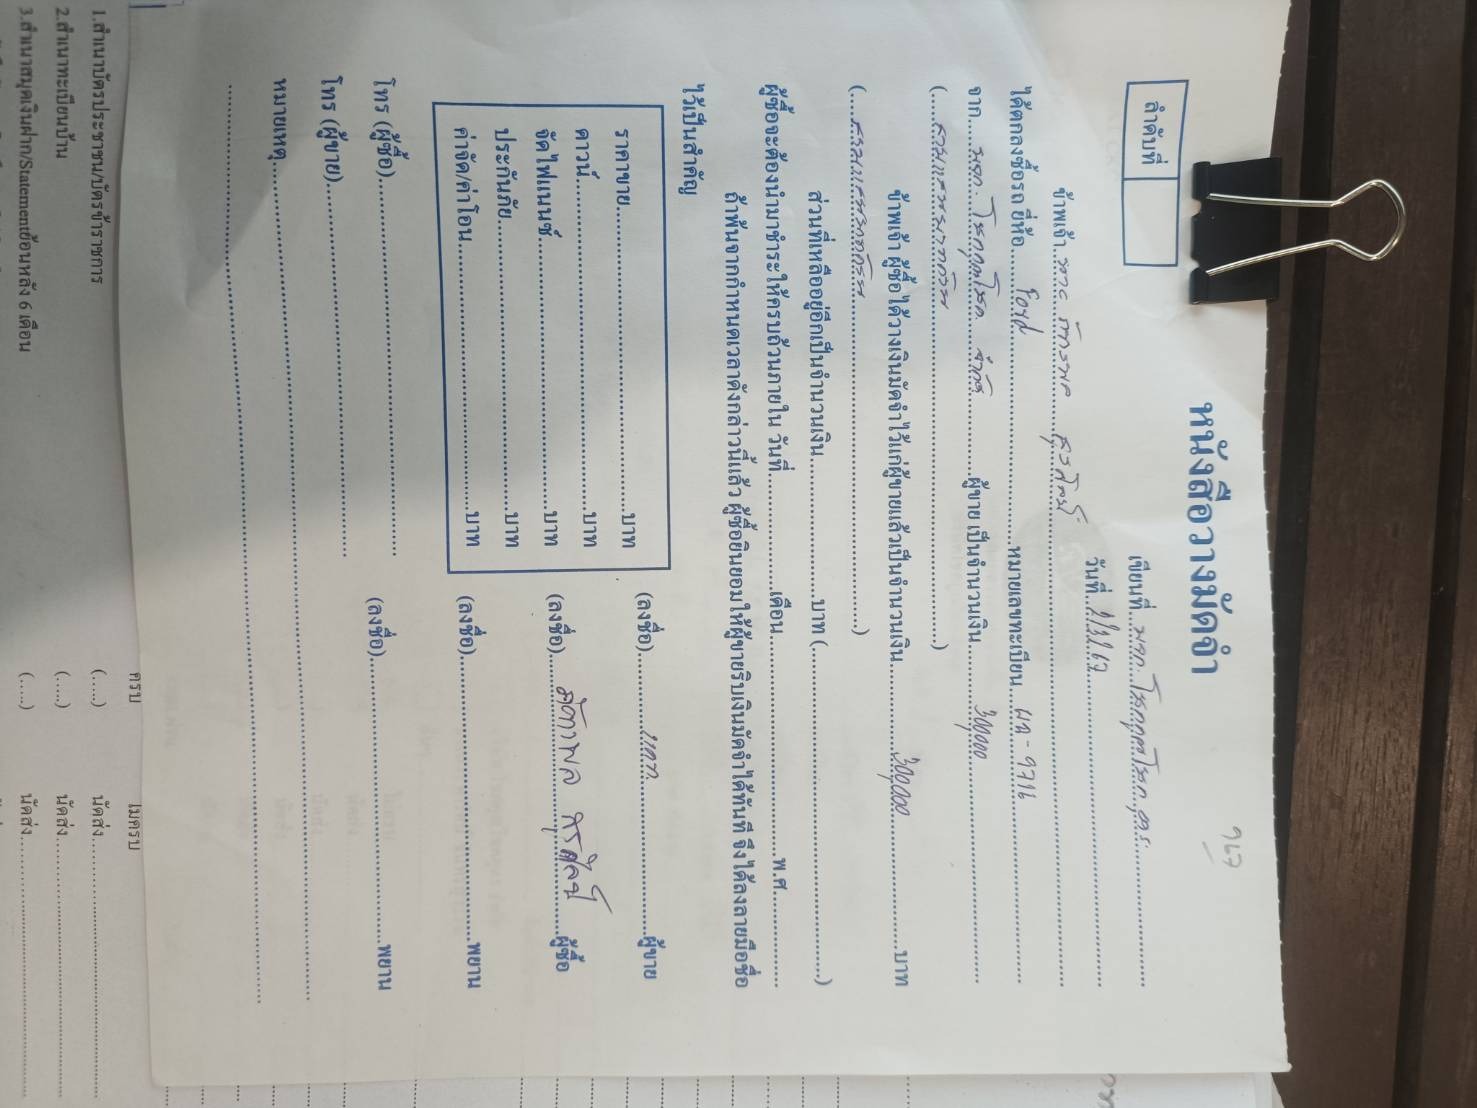 หนังสือวางมัดจำ
ลำดับที่
เขียนที่
วันที่
ข้าพเจ้า
ได้ตกลงซื้อรถ ยี่ห้อ Ford หมายเลขทะเบียน
จาก ผู้ขาย เป็นจำนวนเงิน 300,000
(สามแสนบาทถ้วน)
ข้าพเจ้า ผู้ซื้อ ได้วางเงินมัดจำไว้แก่ผู้ขายแล้วเป็นจำนวนเงิน 300,000 บาท
(สามแสนบาทถ้วน)
ส่วนที่เหลืออยู่อีกเป็นจำนวนเงิน บาท ( )
ผู้ซื้อจะต้องนำมาชำระให้ครบถ้วนภายใน วันที่ เดือน พ.ศ.
ถ้าพ้นจากกำหนดเวลาดังกล่าวนี้แล้ว ผู้ซื้อยินยอมให้ผู้ขายริบเงินมัดจำได้ทันที จึงได้ลงลายมือชื่อ
ไว้เป็นสำคัญ
ราคาขาย บาท
ดาวน์ บาท
จัดไฟแนนซ์ บาท
ประกันภัย บาท
ค่าจัด/ค่าโอน บาท
(ลงชื่อ) ผู้ขาย
(ลงชื่อ) ผู้ซื้อ
(ลงชื่อ) พยาน
(ลงชื่อ) พยาน
โทร (ผู้ซื้อ)
โทร (ผู้ขาย)
หมายเหตุ
ครบ ไม่ครบ
1.สำเนาบัตรประชาชน/บัตรข้าราชการ (....) นัดส่ง
2.สำเนาทะเบียนบ้าน (....) นัดส่ง
3.สำเนาสมุดเงินฝาก/Statementย้อนหลัง 6 เดือน (....) นัดส่ง